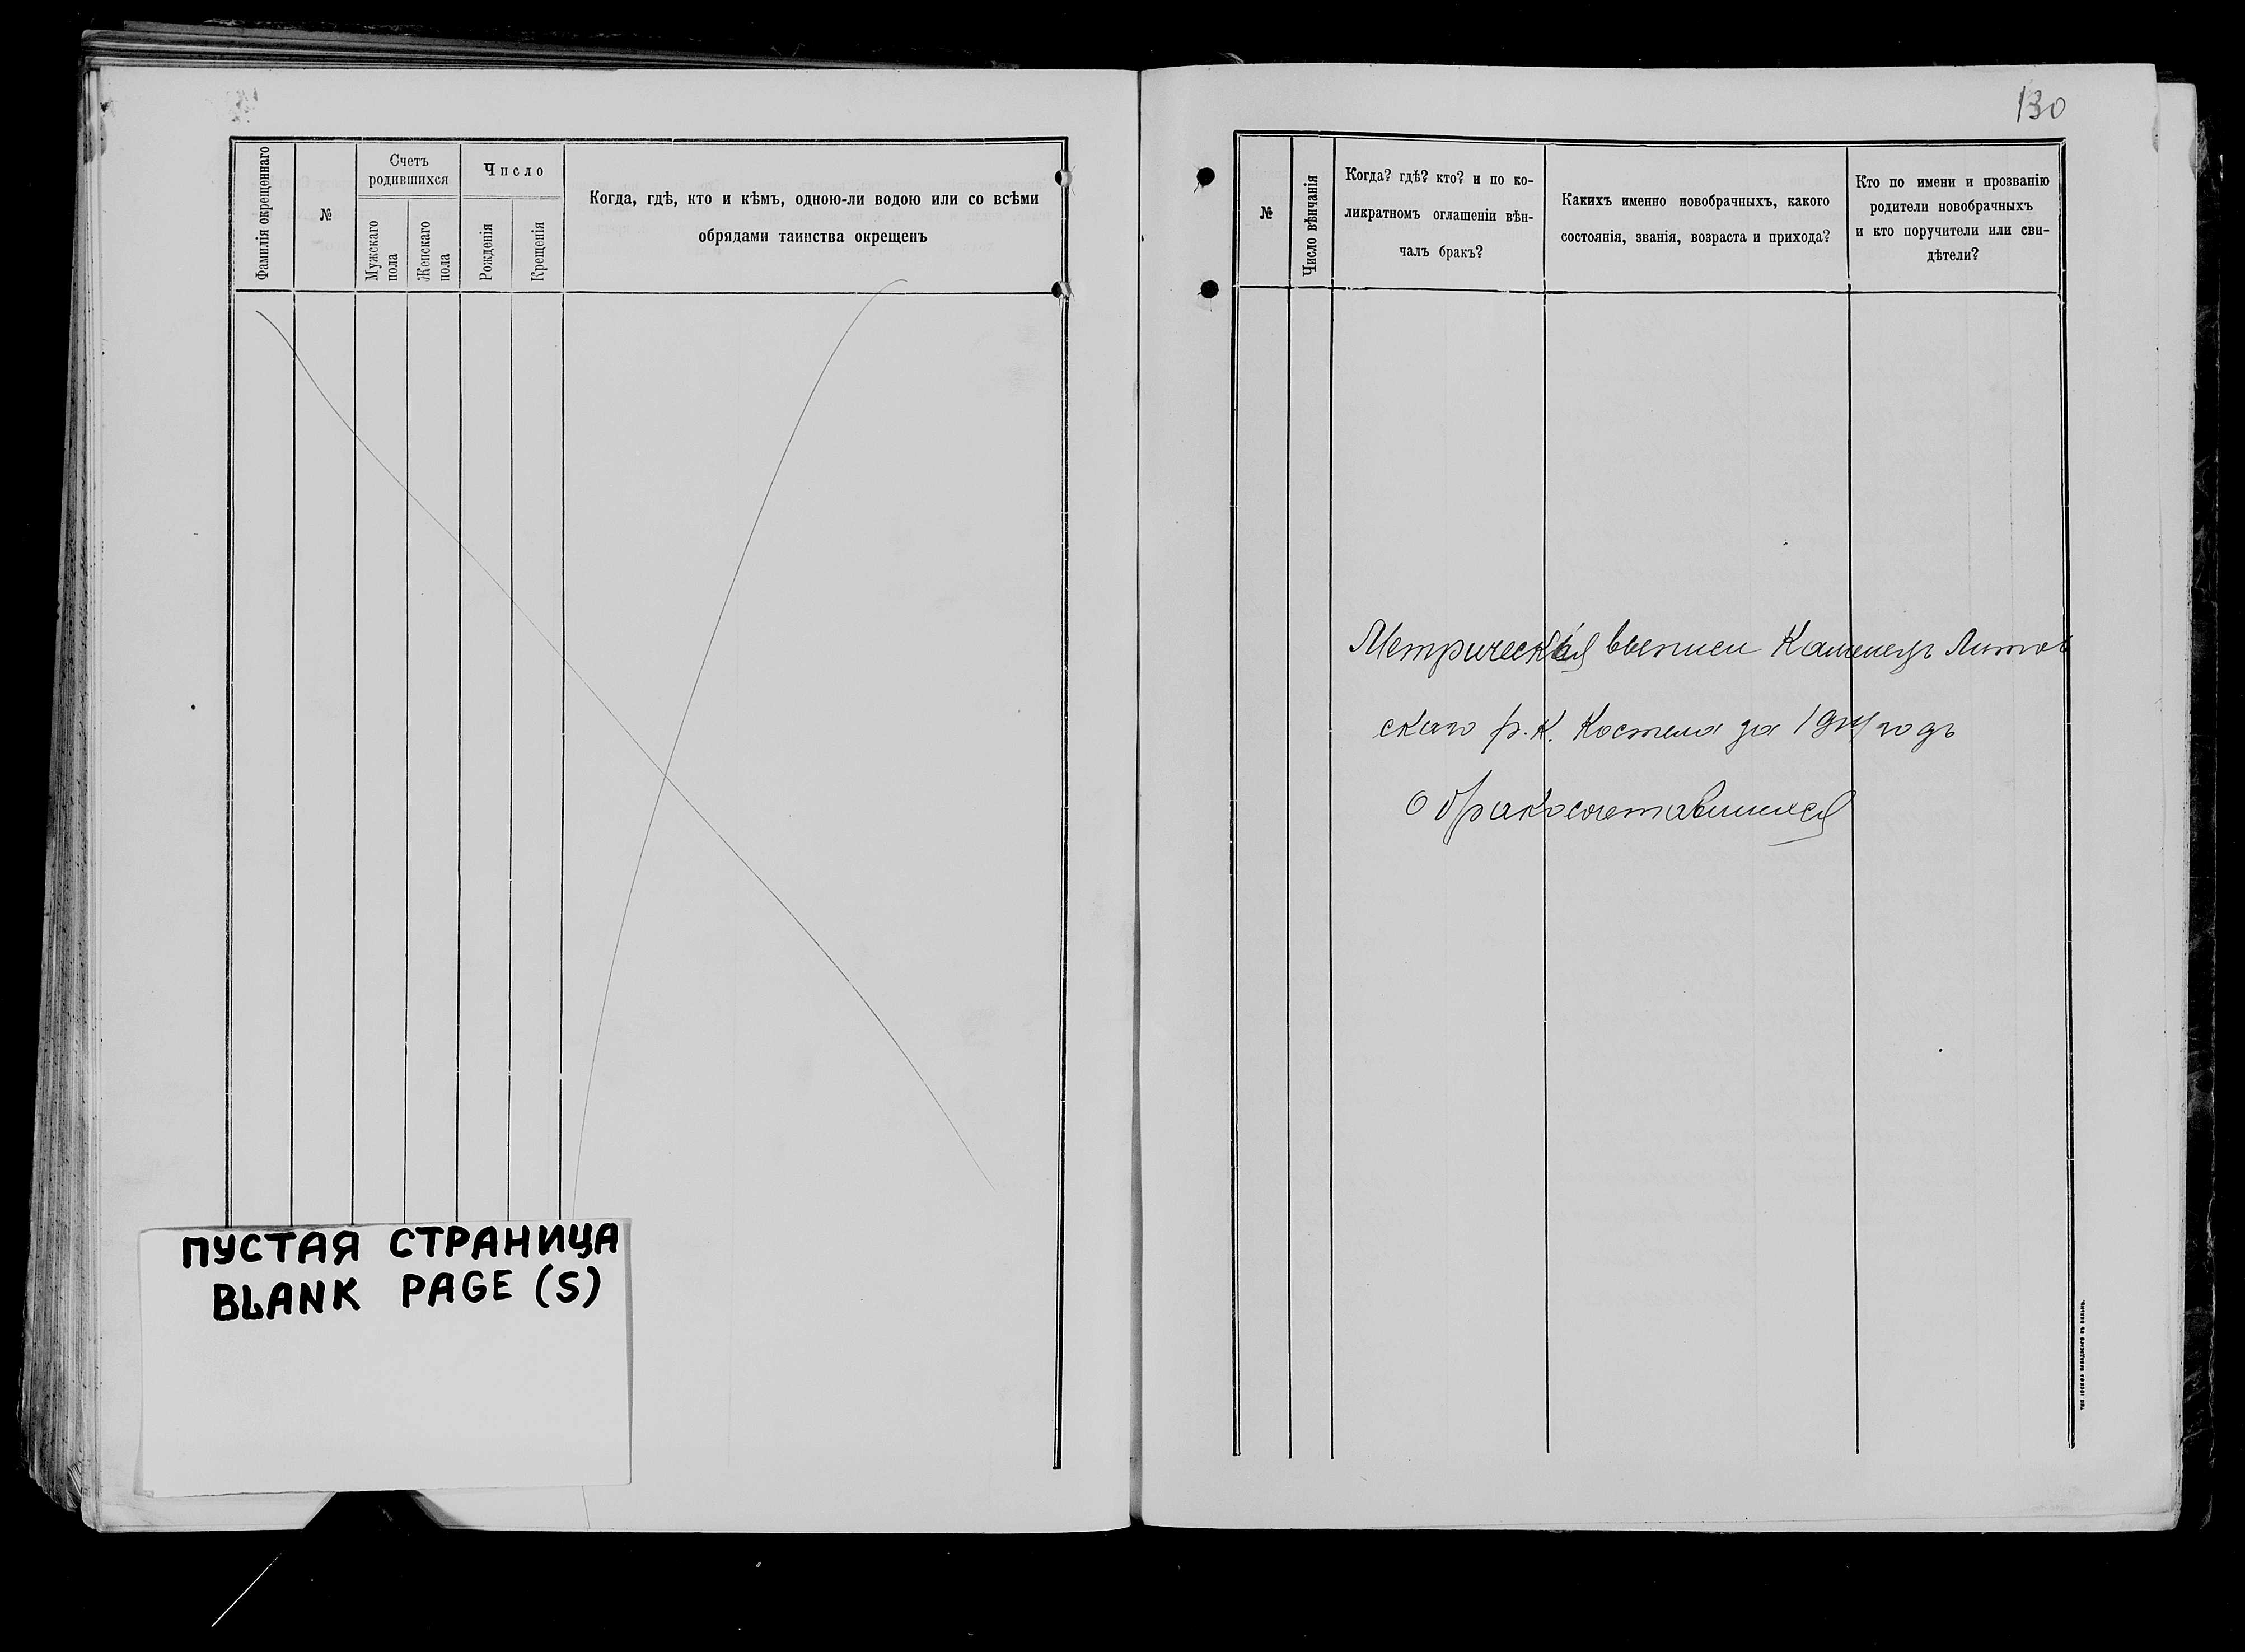 Фамилія окрещеннаго
№
Счетъ
родившихся
Мужскаго
пола
Женскаго
пола
Число
Рожденія
Крещенія
Когда, гдѣ, кто и кѣмъ, одною-ли водою или со всѣми
обрядами таинства окрещенъ
ПУСТАЯ СТРАНИЦА
BLANK PAGE (S)
130
№
Число вѣнчанія
Когда? гдѣ? кто? и по ко-
ликратномъ оглашеніи вѣн-
чалъ бракъ?
Какихъ именно новобрачныхъ, какого
состоянія, званія, возраста и прихода?
Кто по имени и прозванію
родители новобрачныхъ
и кто поручители или сви-
дѣтели?
Метрическія выписи Каменецъ Литов
скаго р. К. Костела за годъ
О бракосочетавшихся